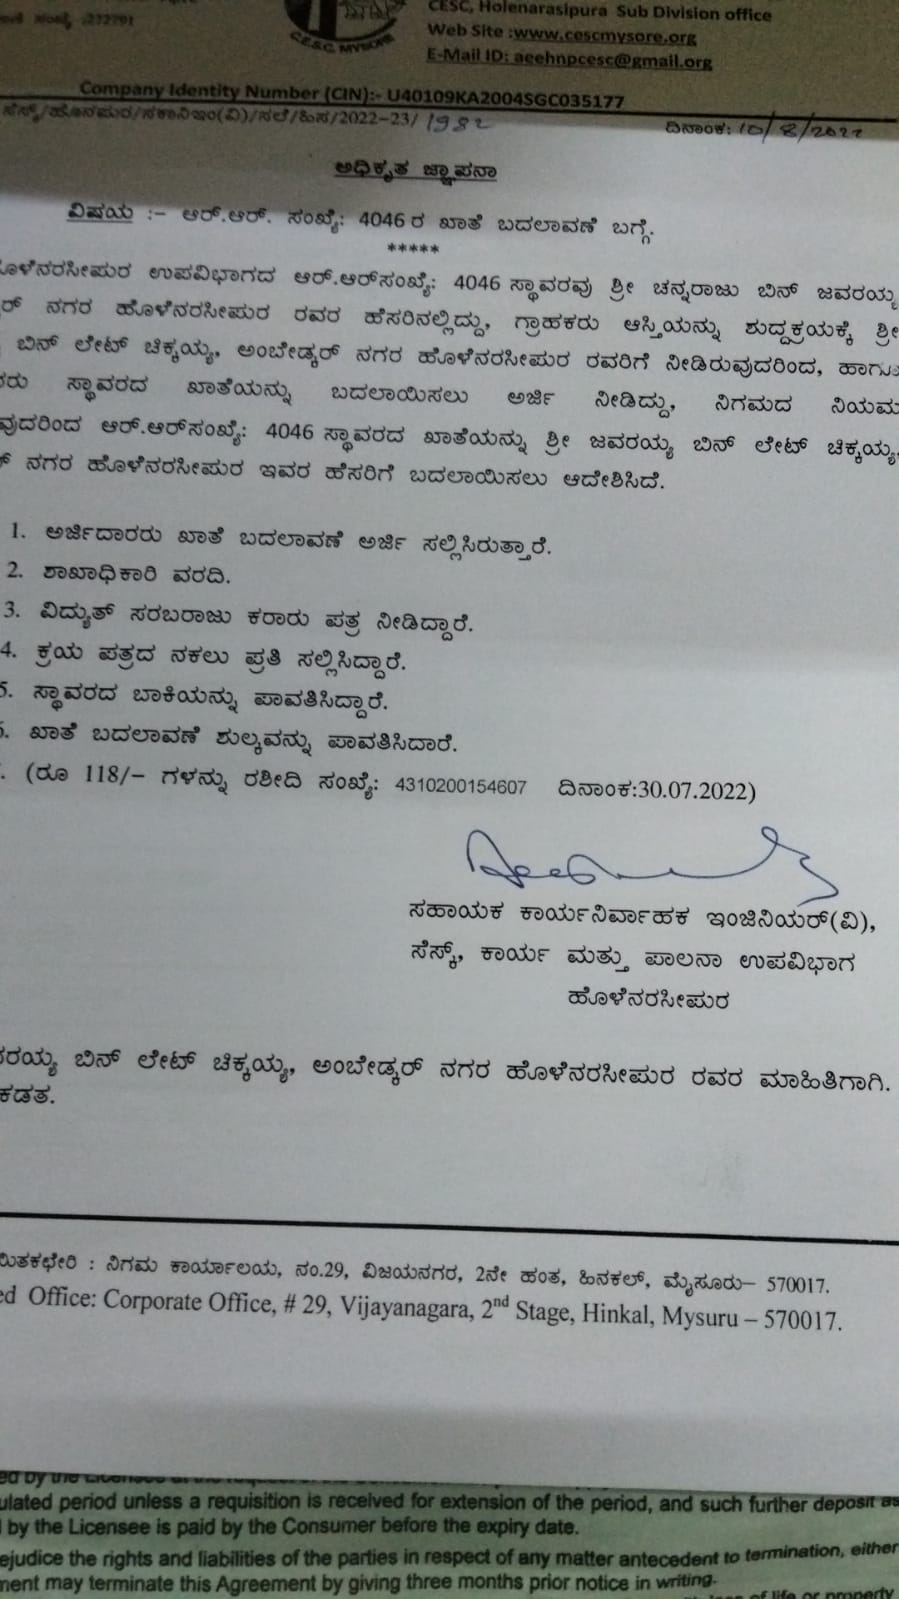 ಸಂಖ್ಯೆ :272701
CESC, Holenarasipura Sub Division office
Web Site :www.cescmysore.org
E-Mail ID: aeehnpcesc@gmail.org
C.E.S.C. MYSORE
Company Identity Number (CIN):- U40109KA2004SGC035177
ಸೆಸ್ಕ್/ಹೊನಪುರ/ಸಕಾನಿಇಂ(ವಿ)/ಸಲೆ/ಹಿಸ/2022-23/ 1982
ದಿನಾಂಕ: 10/8/2022
ಅಧಿಕೃತ ಜ್ಞಾಪನಾ
ವಿಷಯ :- ಆರ್.ಆರ್. ಸಂಖ್ಯೆ: 4046 ರ ಖಾತೆ ಬದಲಾವಣೆ ಬಗ್ಗೆ.
*****
ಹೊಳೆನರಸೀಪುರ ಉಪವಿಭಾಗದ ಆರ್.ಆರ್‌ಸಂಖ್ಯೆ: 4046 ಸ್ಥಾವರವು ಶ್ರೀ ಚನ್ನರಾಜು ಬಿನ್ ಜವರಯ್ಯ
ನಗರ ಹೊಳೆನರಸೀಪುರ ರವರ ಹೆಸರಿನಲ್ಲಿದ್ದು, ಗ್ರಾಹಕರು ಆಸ್ತಿಯನ್ನು ಶುದ್ದಕ್ರಯಕ್ಕೆ ಶ್ರೀ
ಬಿನ್ ಲೇಟ್ ಚಿಕ್ಕಯ್ಯ, ಅಂಬೇಡ್ಕರ್ ನಗರ ಹೊಳೆನರಸೀಪುರ ರವರಿಗೆ ನೀಡಿರುವುದರಿಂದ, ಹಾಗೂ
ಸ್ಥಾವರದ ಖಾತೆಯನ್ನು ಬದಲಾಯಿಸಲು ಅರ್ಜಿ ನೀಡಿದ್ದು, ನಿಗಮದ ನಿಯಮ
ವುದರಿಂದ ಆರ್.ಆರ್‌ಸಂಖ್ಯೆ: 4046 ಸ್ಥಾವರದ ಖಾತೆಯನ್ನು ಶ್ರೀ ಜವರಯ್ಯ ಬಿನ್ ಲೇಟ್ ಚಿಕ್ಕಯ್ಯ,
ನಗರ ಹೊಳೆನರಸೀಪುರ ಇವರ ಹೆಸರಿಗೆ ಬದಲಾಯಿಸಲು ಆದೇಶಿಸಿದೆ.
1. ಅರ್ಜಿದಾರರು ಖಾತೆ ಬದಲಾವಣೆ ಅರ್ಜಿ ಸಲ್ಲಿಸಿರುತ್ತಾರೆ.
2. ಶಾಖಾಧಿಕಾರಿ ವರದಿ.
3. ವಿದ್ಯುತ್ ಸರಬರಾಜು ಕರಾರು ಪತ್ರ ನೀಡಿದ್ದಾರೆ.
4. ಕ್ರಯ ಪತ್ರದ ನಕಲು ಪ್ರತಿ ಸಲ್ಲಿಸಿದ್ದಾರೆ.
5. ಸ್ಥಾವರದ ಬಾಕಿಯನ್ನು ಪಾವತಿಸಿದ್ದಾರೆ.
6. ಖಾತೆ ಬದಲಾವಣೆ ಶುಲ್ಕವನ್ನು ಪಾವತಿಸಿದಾರೆ.
. (ರೂ 118/- ಗಳನ್ನು ರಶೀದಿ ಸಂಖ್ಯೆ: 4310200154607 ದಿನಾಂಕ:30.07.2022)
ಸಹಾಯಕ ಕಾರ್ಯನಿರ್ವಾಹಕ ಇಂಜಿನಿಯರ್(ವಿ),
ಸೆಸ್ಕ್, ಕಾರ್ಯ ಮತ್ತು ಪಾಲನಾ ಉಪವಿಭಾಗ
ಹೊಳೆನರಸೀಪುರ
ವರಯ್ಯ ಬಿನ್ ಲೇಟ್ ಚಿಕ್ಕಯ್ಯ, ಅಂಬೇಡ್ಕರ್ ನಗರ ಹೊಳೆನರಸೀಪುರ ರವರ ಮಾಹಿತಿಗಾಗಿ.
ಕಡತ.
ಮಿತಕಛೇರಿ : ನಿಗಮ ಕಾರ್ಯಾಲಯ, ನಂ.29, ವಿಜಯನಗರ, 2ನೇ ಹಂತ, ಹಿನಕಲ್, ಮೈಸೂರು- 570017.
ed Office: Corporate Office, # 29, Vijayanagara, 2nd Stage, Hinkal, Mysuru – 570017.
ed by the Licensee
ulated period unless a requisition is received for extension of the period, and such further deposit as
by the Licensee is paid by the Consumer before the expiry date.
ejudice the rights and liabilities of the parties in respect of any matter antecedent to termination, either
ment may terminate this Agreement by giving three months prior notice in writing.
of life or property